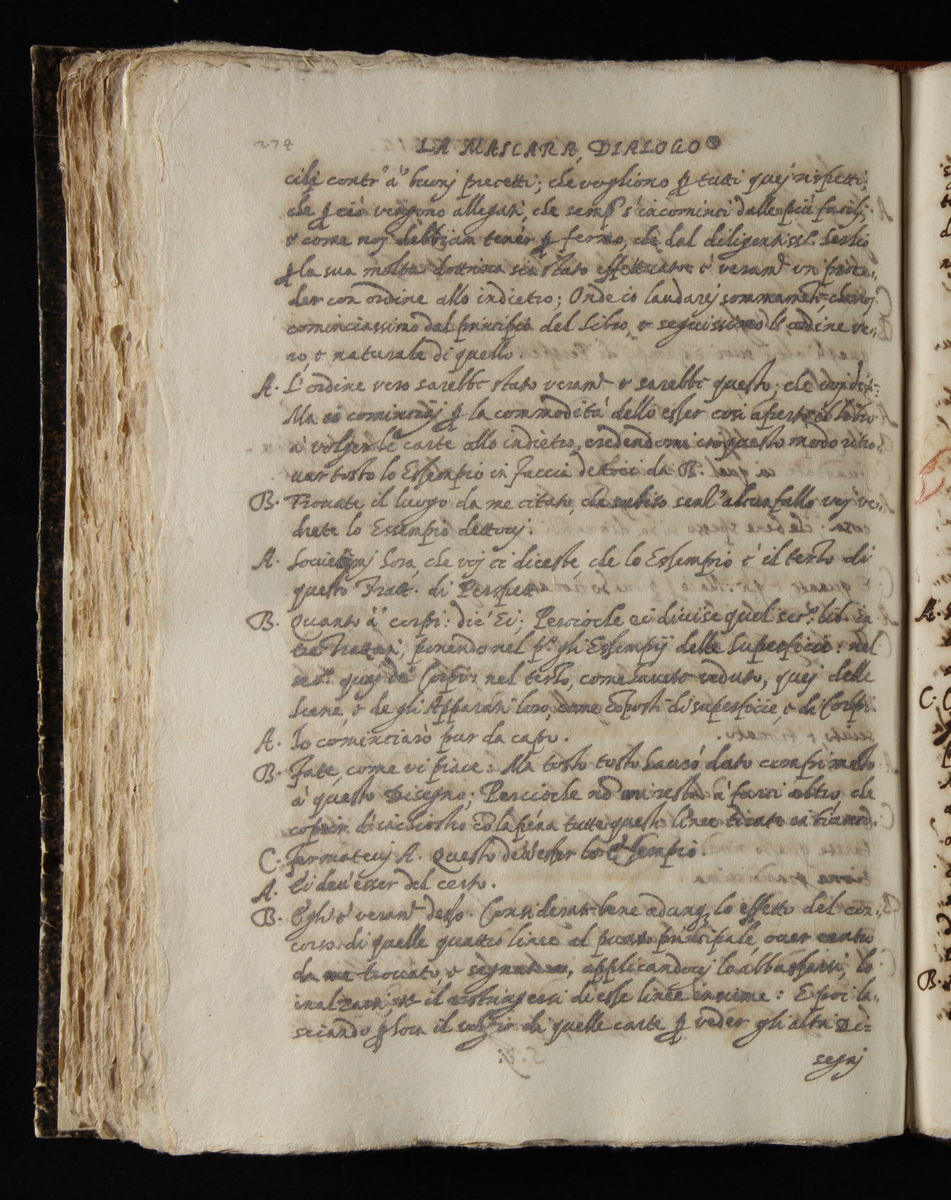 274
LA MASCARA, DIALOGO
cili contr' à buonj precetti; che vogliono p tutti quej rispetti,
che p ciò vengono allegati, che semp s'incominci dalle più facilj;
e come noj debbiam tener p fermo, che dal diligentiss.º Serlio
p la sua molta dottrina sia stato effettuato: è veram.te un proce-
der con ordine allo indietro; Onde io laudarej sommamẽte, che noj
cominciassimo dal principio del libro, e seguissimo l'ordine ve-
ro, e naturale di quello.
A. L'ordine vero sarebbe stato veram.te e sarebbe questo, che
Ma io cominciaj p la commodità dello esser così aperto il libro
à volger le carte allo indietro, credendomi in questo modo ritro-
var tosto lo Essempio in faccia dettoci da B.
B. Trovate il luogo da me citato, che subito senz' alcun fallo voj ve-
drete lo Essempio dettovj.
A. hora, che voj ci diceste, che lo Essempio è il terzo di
questo Tratt. di Perspett.
B. Quanto à corpi: dic' Ei; Perciocle ei divise quel sec.º lib. in
tre Trattati; ponendo nel p.º gli Essempij delle superficie: nel
sec.º quej de' Corpi: nel terzo, come havete veduto, quej delle
Scene, e de gli Apparati loro, come cõposti di superficie, e da Corpi.
A. Io cominciarò pur da capo.
B. Fate, come vi piace: Ma tosto tosto havrò dato compimẽto
à questo Disegno; Perciocle nõ mi resta à farci altro che
coprir d'inchiostro cõ la penna tutte queste linee tirate in
C. Fermatevj A. Questo dev' esser lo Essempio.
A. Ei dev' esser del certo.
B. Egli è veram.te desso. Considerate bene adunq, lo effetto del con-
corso di quelle quattro linee al punto principale over centro
da me trovato e segnato, applicandovj lo abbassarsi, lo
inalzarsi, et il ristringersi di esse linee insieme: E poi la-
sciando p hora il volger di quelle carte p veder gli altri Di-
segnj